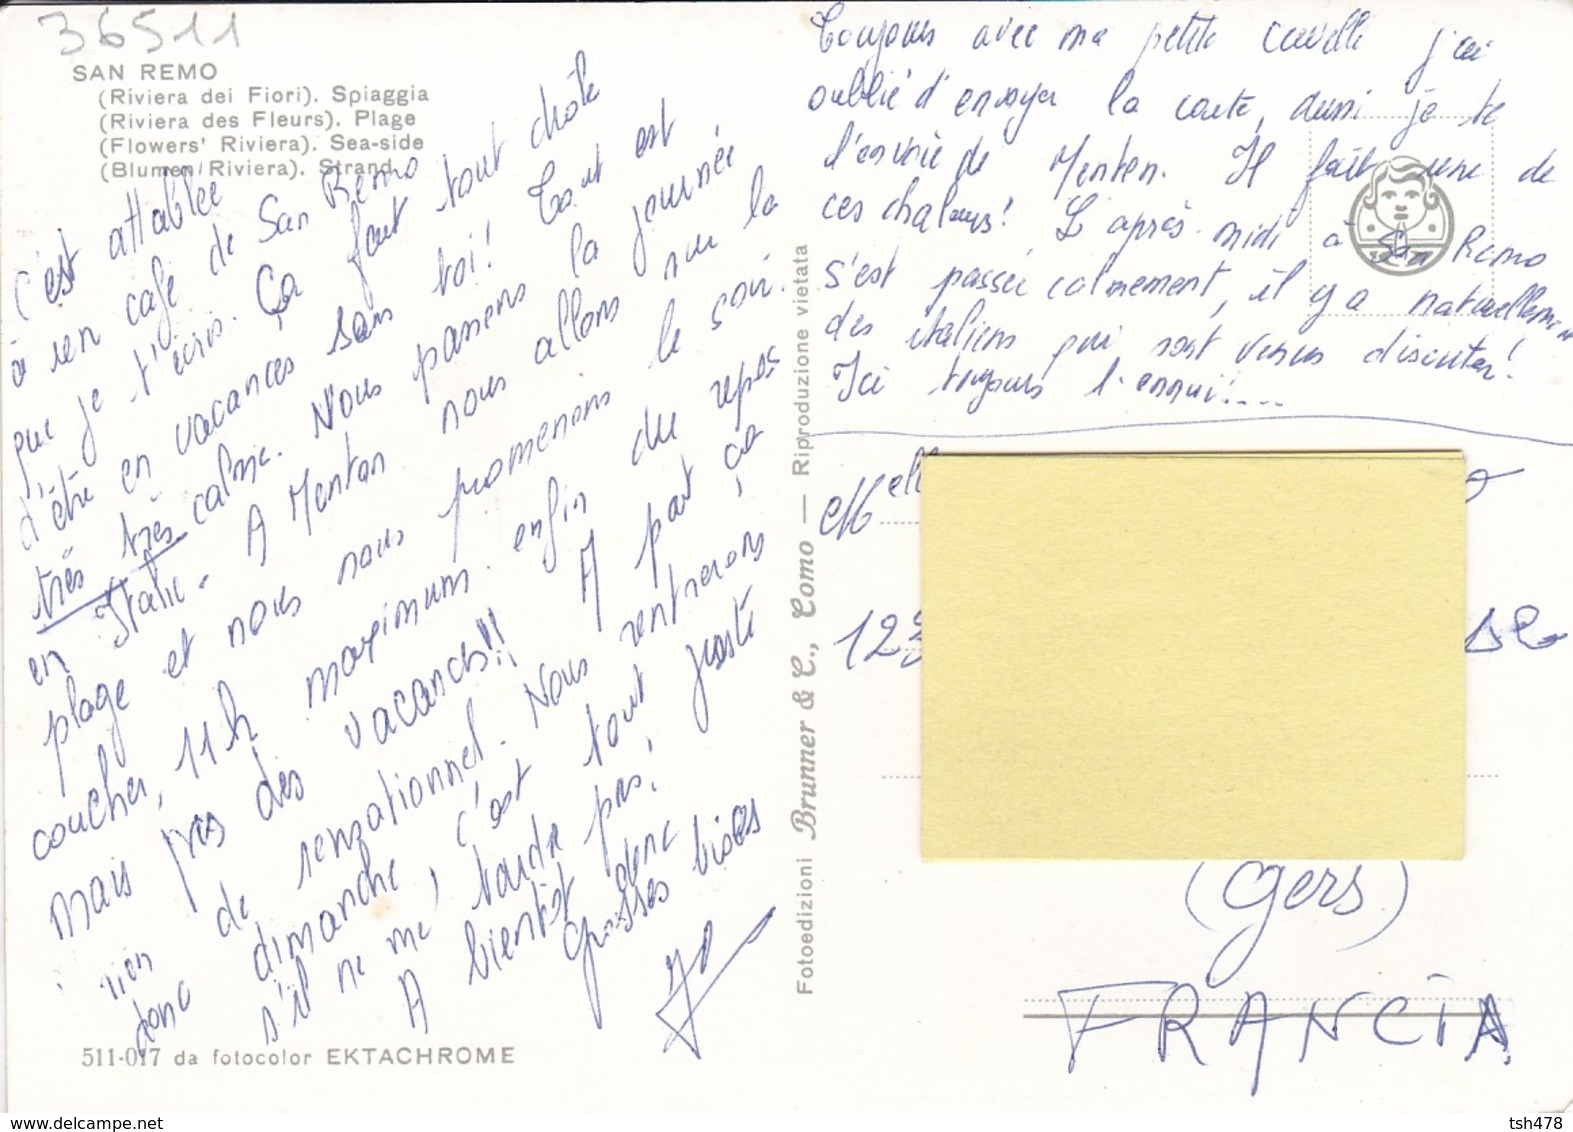 36511
SAN REMO
(Riviera dei Fiori). Spiaggia
(Riviera des Fleurs). Plage
(Flowers' Riviera). Sea-side
(Blumen Riviera). Strand
C'est attablée
à un café de San Remo
que je t'écris. Ça fait tout drôle
d'être en vacances sans toi! Tout est
très très calme. Nous passons la journée
en Italie. A Menton nous allons sur la
plage et nous nous promenons le soir.
coucher, 11h maximum. enfin du repos
mais pas des vacances!! A part ça
rien de sensationnel. Nous rentrerons
donc dimanche, c'est tout juste
s'il ne me tarde pas!
A bientôt donc
grosses bises
511-017 da fotocolor EKTACHROME
Fotoedizioni Brunner & C., Como — Riproduzione vietata
Toujours avec ma petite cervelle j'ai
oublié d'envoyer la carte, aussi je te
l'envoie de Menton. Il fait une de
ces chaleurs! L'après-midi à San Remo
s'est passée calmement, il y a naturellement
des italiens qui sont venus discuter!
Ici toujours l'ennui!....
Mell
123
se
(Gers)
FRANCIA
tsh478